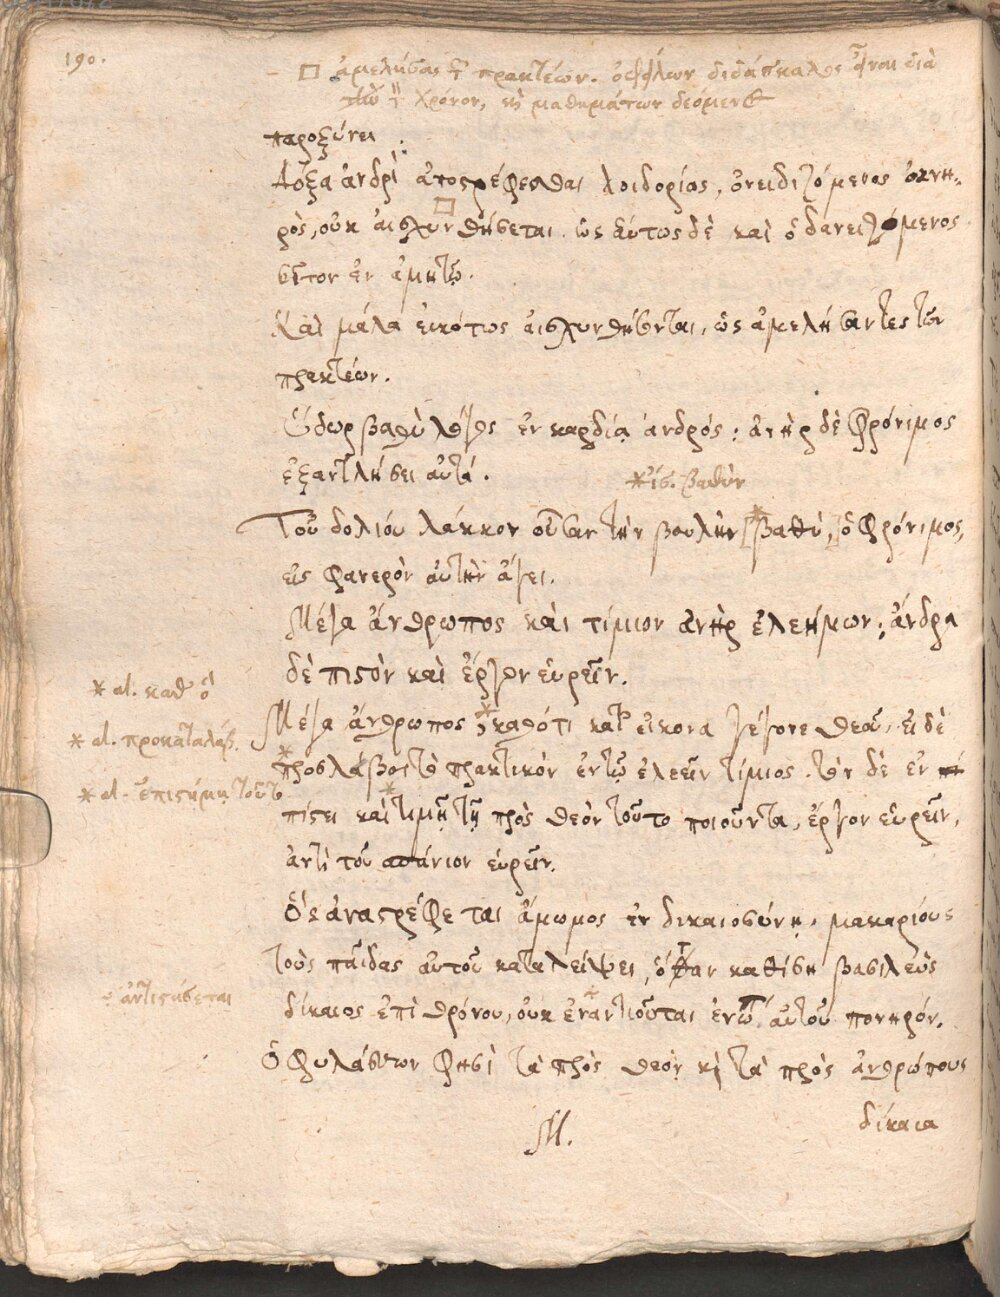 190.
□ ἀμελήσας τ πρακτέων. ὀφείλων διδάσκαλος εἶναι διὰ
τὸν χρόνον, κ μαθημάτων δεόμενος
παροξύνει
Δόξα ἀνδρὶ ἀποστρέφεσθαι λοιδορίας, ὀνειδιζόμενος ὀκνη-
ρὸς, οὐκ αἰσχυνθήσεται. □ ὡσαύτως δὲ καὶ ὁ δανειζόμενος
σῖτον ἐν ἀμητῷ.
Καὶ μάλα εἰκότως αἰσχυνθήσονται, ὡς ἀμελήσαντες τῶν
πρακτέων.
Ὕδωρ βαθὺ λόγος ἐν καρδίᾳ ἀνδρός; ἀνὴρ δὲ φρόνιμος
ἐξαντλήσει αὐτά.
*ἴσ. βαθὺν
Τοῦ δολίου λάκκον οὖσαν τὴν βουλὴν [*βαθύ,] ὁ φρόνιμος,
εἰς φανερὸν αὐτὴν ἄξει.
Μέγα ἄνθρωπος καὶ τίμιον ἀνὴρ ἐλεήμων; ἄνδρα
δὲ πιστὸν καὶ ἔργον εὑρεῖν.
* al. καθ ὃ
Μέγα ἄνθρωπος, *καθότι κατ εἰκόνα γέγονε θεοῦ, εἰ δὲ
* al. προκαταλάβ.
*προσλάβοι τὸ πρακτικὸν ἐν τῷ ἐλεεῖν τίμιος. τὸν δὲ ἐν
* al. ἐπιστήμῃ τοῦτο
πίστει καὶ *τιμῇ τῇ πρὸς θεὸν τοῦτο ποιοῦντα, ἔργον εὑρεῖν,
ἀντὶ τοῦ σπάνιον εὑρεῖν.
Ὃς ἀναστρέφεται ἄμωμος ἐν δικαιοσύνῃ, μακαρίους
τοὺς παῖδας αὐτοῦ καταλείψει, ὅταν καθίσῃ βασιλεὺς
+ ἀντιστήσεται
δίκαιος ἐπὶ θρόνου, οὐκ ἐναντιοῦται ἐνώπ. αὐτοῦ πονηρόν.
Ὁ φυλάσσων φησὶ τὰ πρὸς θεὸν κ τὰ πρὸς ἀνθρώπους
M. δίκαια